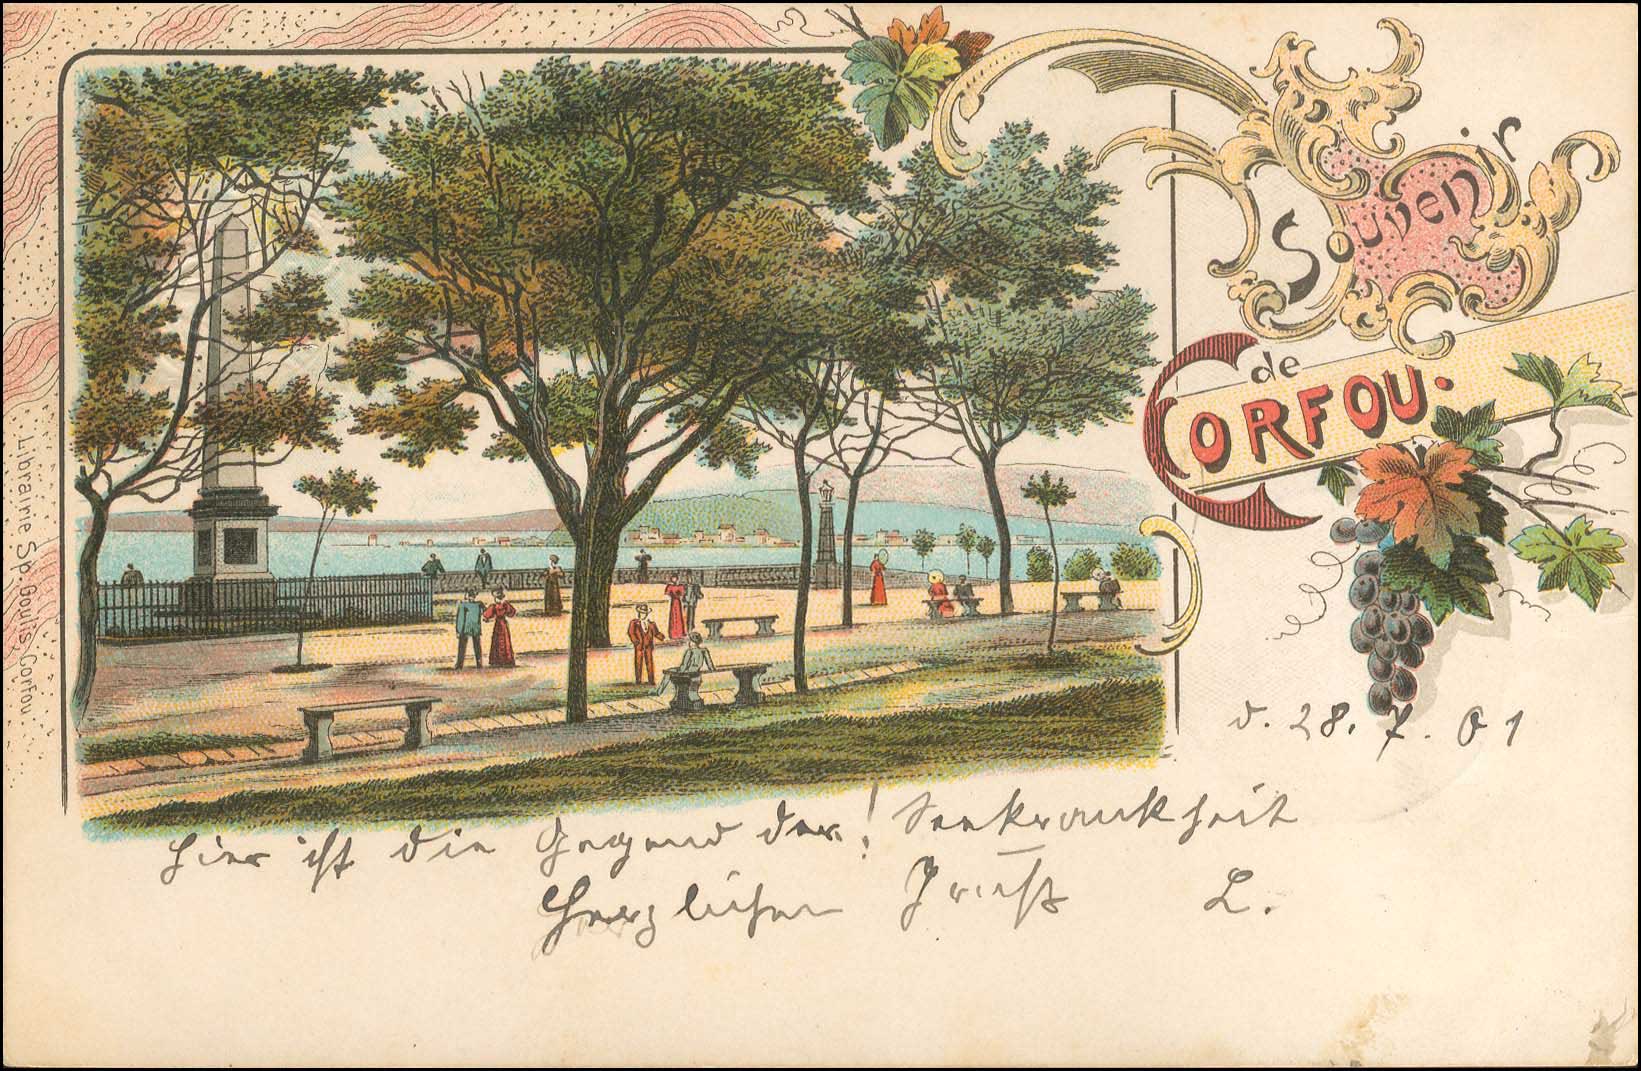 Souvenir
de
CORFOU.
Librairie Sp. Gouïs, Corfou.
d. 28. 7. 01
Hier ist die Gegend der! Seekrankheit
Herzlichen Gruß L.